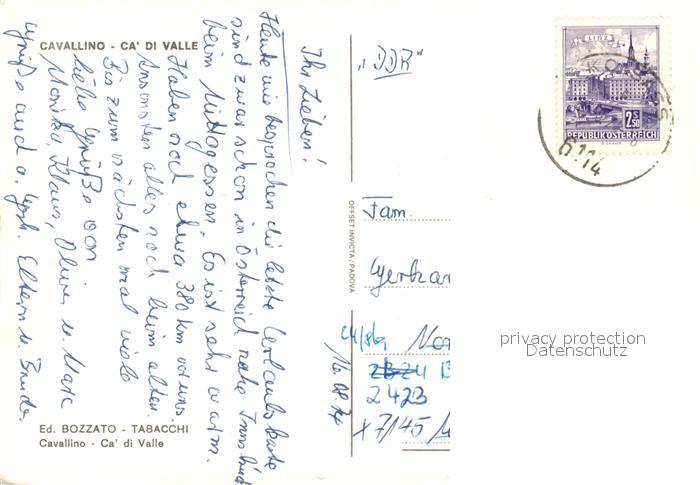 CAVALLINO - CA' DI VALLE
Ihr Lieben!
Heute wie besprochen die letzte Urlaubskarte
sind zwar schon in Österreich nahe Innsbruck
beim Mittagessen. Es ist sehr warm.
Haben noch etwa 380 km vor uns.
Ansonsten alles noch beim alten.
Bis zum nächsten mal viele
liebe Grüße von
Monika, Klaus, Oliver u. Marc
Grüße auch a. Gesch. Eltern u. Bruder
Ed. BOZZATO - TABACCHI
Cavallino - Ca' di Valle
OFFSET INVICTA / PADOVA
16.08.74
"DDR"
Fam.
Gerhar
2423
X 7145
LINZ
2.50
REPUBLIK ÖSTERREICH
6114
privacy protection
Datenschutz